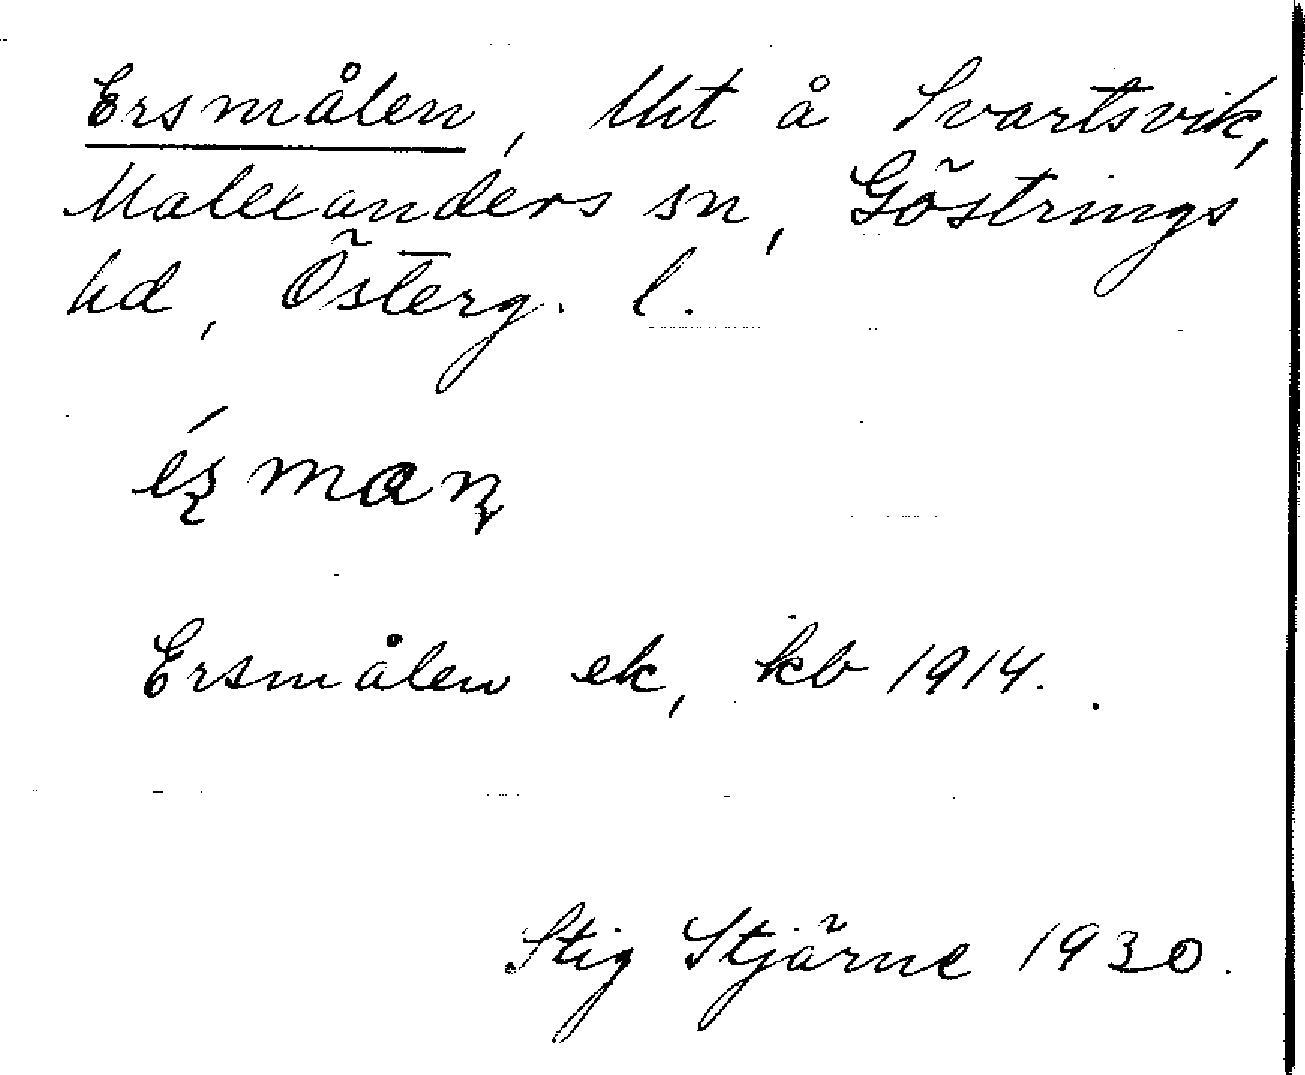 Ersmålen, Utt å Svartsvik,
Malexanders sn, Göstrings
hd, Österg. l.
Ersmålen ek, kb 1914.
Stig Stjärne 1930.